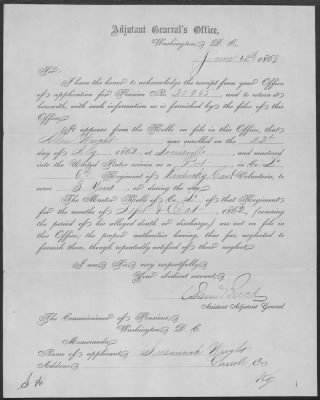 Adjutant General's Office,
Washington, D. C.
June 12th 1863
Sir:
I have the honor to acknowledge the receipt from your Office
of application for Pension No. 20985, and to return it
herewith, with such information as is furnished by the files of this
Office.
It appears from the Rolls on file in this Office, that
Wright was enrolled on the 22d
day of July, 1862, at and mustered
into the United States service in Co.
6th Regiment of Kentucky Cav Volunteers, to
serve 3 Years, or during the war.
The Muster Rolls of Co. of that Regiment
for the months of Sept & Oct, 1862, (covering
the period of his alleged death or discharge,) are not on file in
this Office; the proper authorities having, thus far, neglected to
furnish them, though repeatedly notified of their neglect.
I am, Sir, very respectfully,
Your obedient servant,
Assistant Adjutant General.
The Commissioner of Pensions,
Washington, D. C.
Memoranda:
Name of applicant, Susannah Wright
Address, Carroll Co
Ky